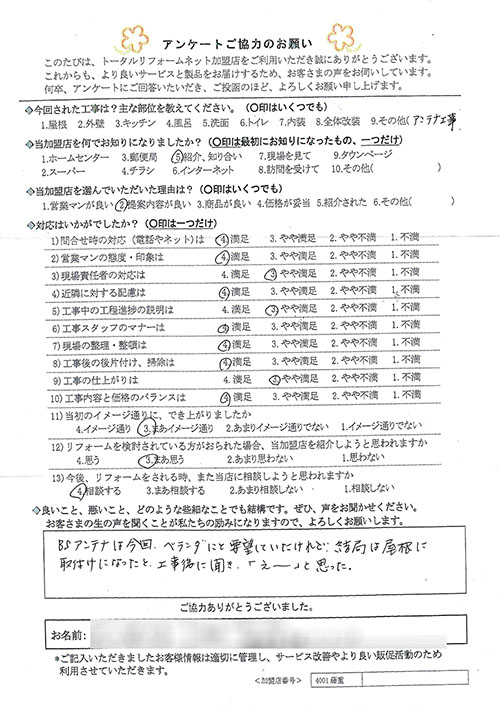 アンケートご協力のお願い
このたびは、トータルリフォームネット加盟店をご利用いただき誠にありがとうございます。
これからも、より良いサービスと製品をお届けするため、お客さまの声をお伺いしています。
何卒、アンケートにご回答いただき、ご投函のほど、よろしくお願い申し上げます。
◆今回された工事は？主な部位を教えてください。（〇印はいくつでも）
1.屋根 2.外壁 3.キッチン 4.風呂 5.洗面 6.トイレ 7.内装 8.全体改装 9.その他( アンテナ工事
◆当加盟店を何でお知りになりましたか？（〇印は最初にお知りになったもの、一つだけ）
1.ホームセンター 3.郵便局 5.紹介、知り合い 7.現場を見て 9.タウンページ
2.スーパー 4.チラシ 6.インターネット 8.訪問を受けて 10.その他( )
◆当加盟店を選んでいただいた理由は？（〇印はいくつでも）
1.営業マンが良い 2.提案内容が良い 3.商品が良い 4.価格が妥当 5.紹介された 6.その他( )
◆対応はいかがでしたか？（〇印は一つだけ）
1)問合せ時の対応（電話やネット）は 4.満足 3.やや満足 2.やや不満 1.不満
2)営業マンの態度・印象は 4.満足 3.やや満足 2.やや不満 1.不満
3)現場責任者の対応は 4.満足 3.やや満足 2.やや不満 1.不満
4)近隣に対する配慮は 4.満足 3.やや満足 2.やや不満 1.不満
5)工事中の工程進捗の説明は 4.満足 3.やや満足 2.やや不満 1.不満
6)工事スタッフのマナーは 4.満足 3.やや満足 2.やや不満 1.不満
7)現場の整理・整頓は 4.満足 3.やや満足 2.やや不満 1.不満
8)工事後の後片付け、掃除は 4.満足 3.やや満足 2.やや不満 1.不満
9)工事の仕上がりは 4.満足 3.やや満足 2.やや不満 1.不満
10)工事内容と価格のバランスは 4.満足 3.やや満足 2.やや不満 1.不満
11)当初のイメージ通りに、でき上がりましたか
4.イメージ通り 3.まあイメージ通り 2.あまりイメージ通りでない 1.イメージ通りでない
12)リフォームを検討されている方がおられた場合、当加盟店を紹介しようと思われますか
4.思う 3.まあ思う 2.あまり思わない 1.思わない
13)今後、リフォームをされる時、また当店に相談しようと思われますか
4.相談する 3.まあ相談する 2.あまり相談しない 1.相談しない
◆良いこと、悪いこと、どのような些細なことでも結構です。ぜひ、声をお聞かせください。
お客さまの生の声を聞くことが私たちの励みになりますので、よろしくお願いします。
BSアンテナは今回、ベランダにと要望していたけれど、結局は屋根に
取付けになったと、工事後に聞き、「えー」と思った。
ご協力ありがとうございました。
お名前:
*ご記入いただきましたお客様情報は適切に管理し、サービス改善やより良い販促活動のため
利用させていただきます。
<加盟店番号> 4001藤藍